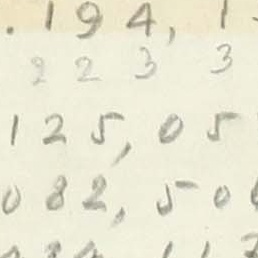 .194, 1
2 2 3 3
125, 05
082, 50